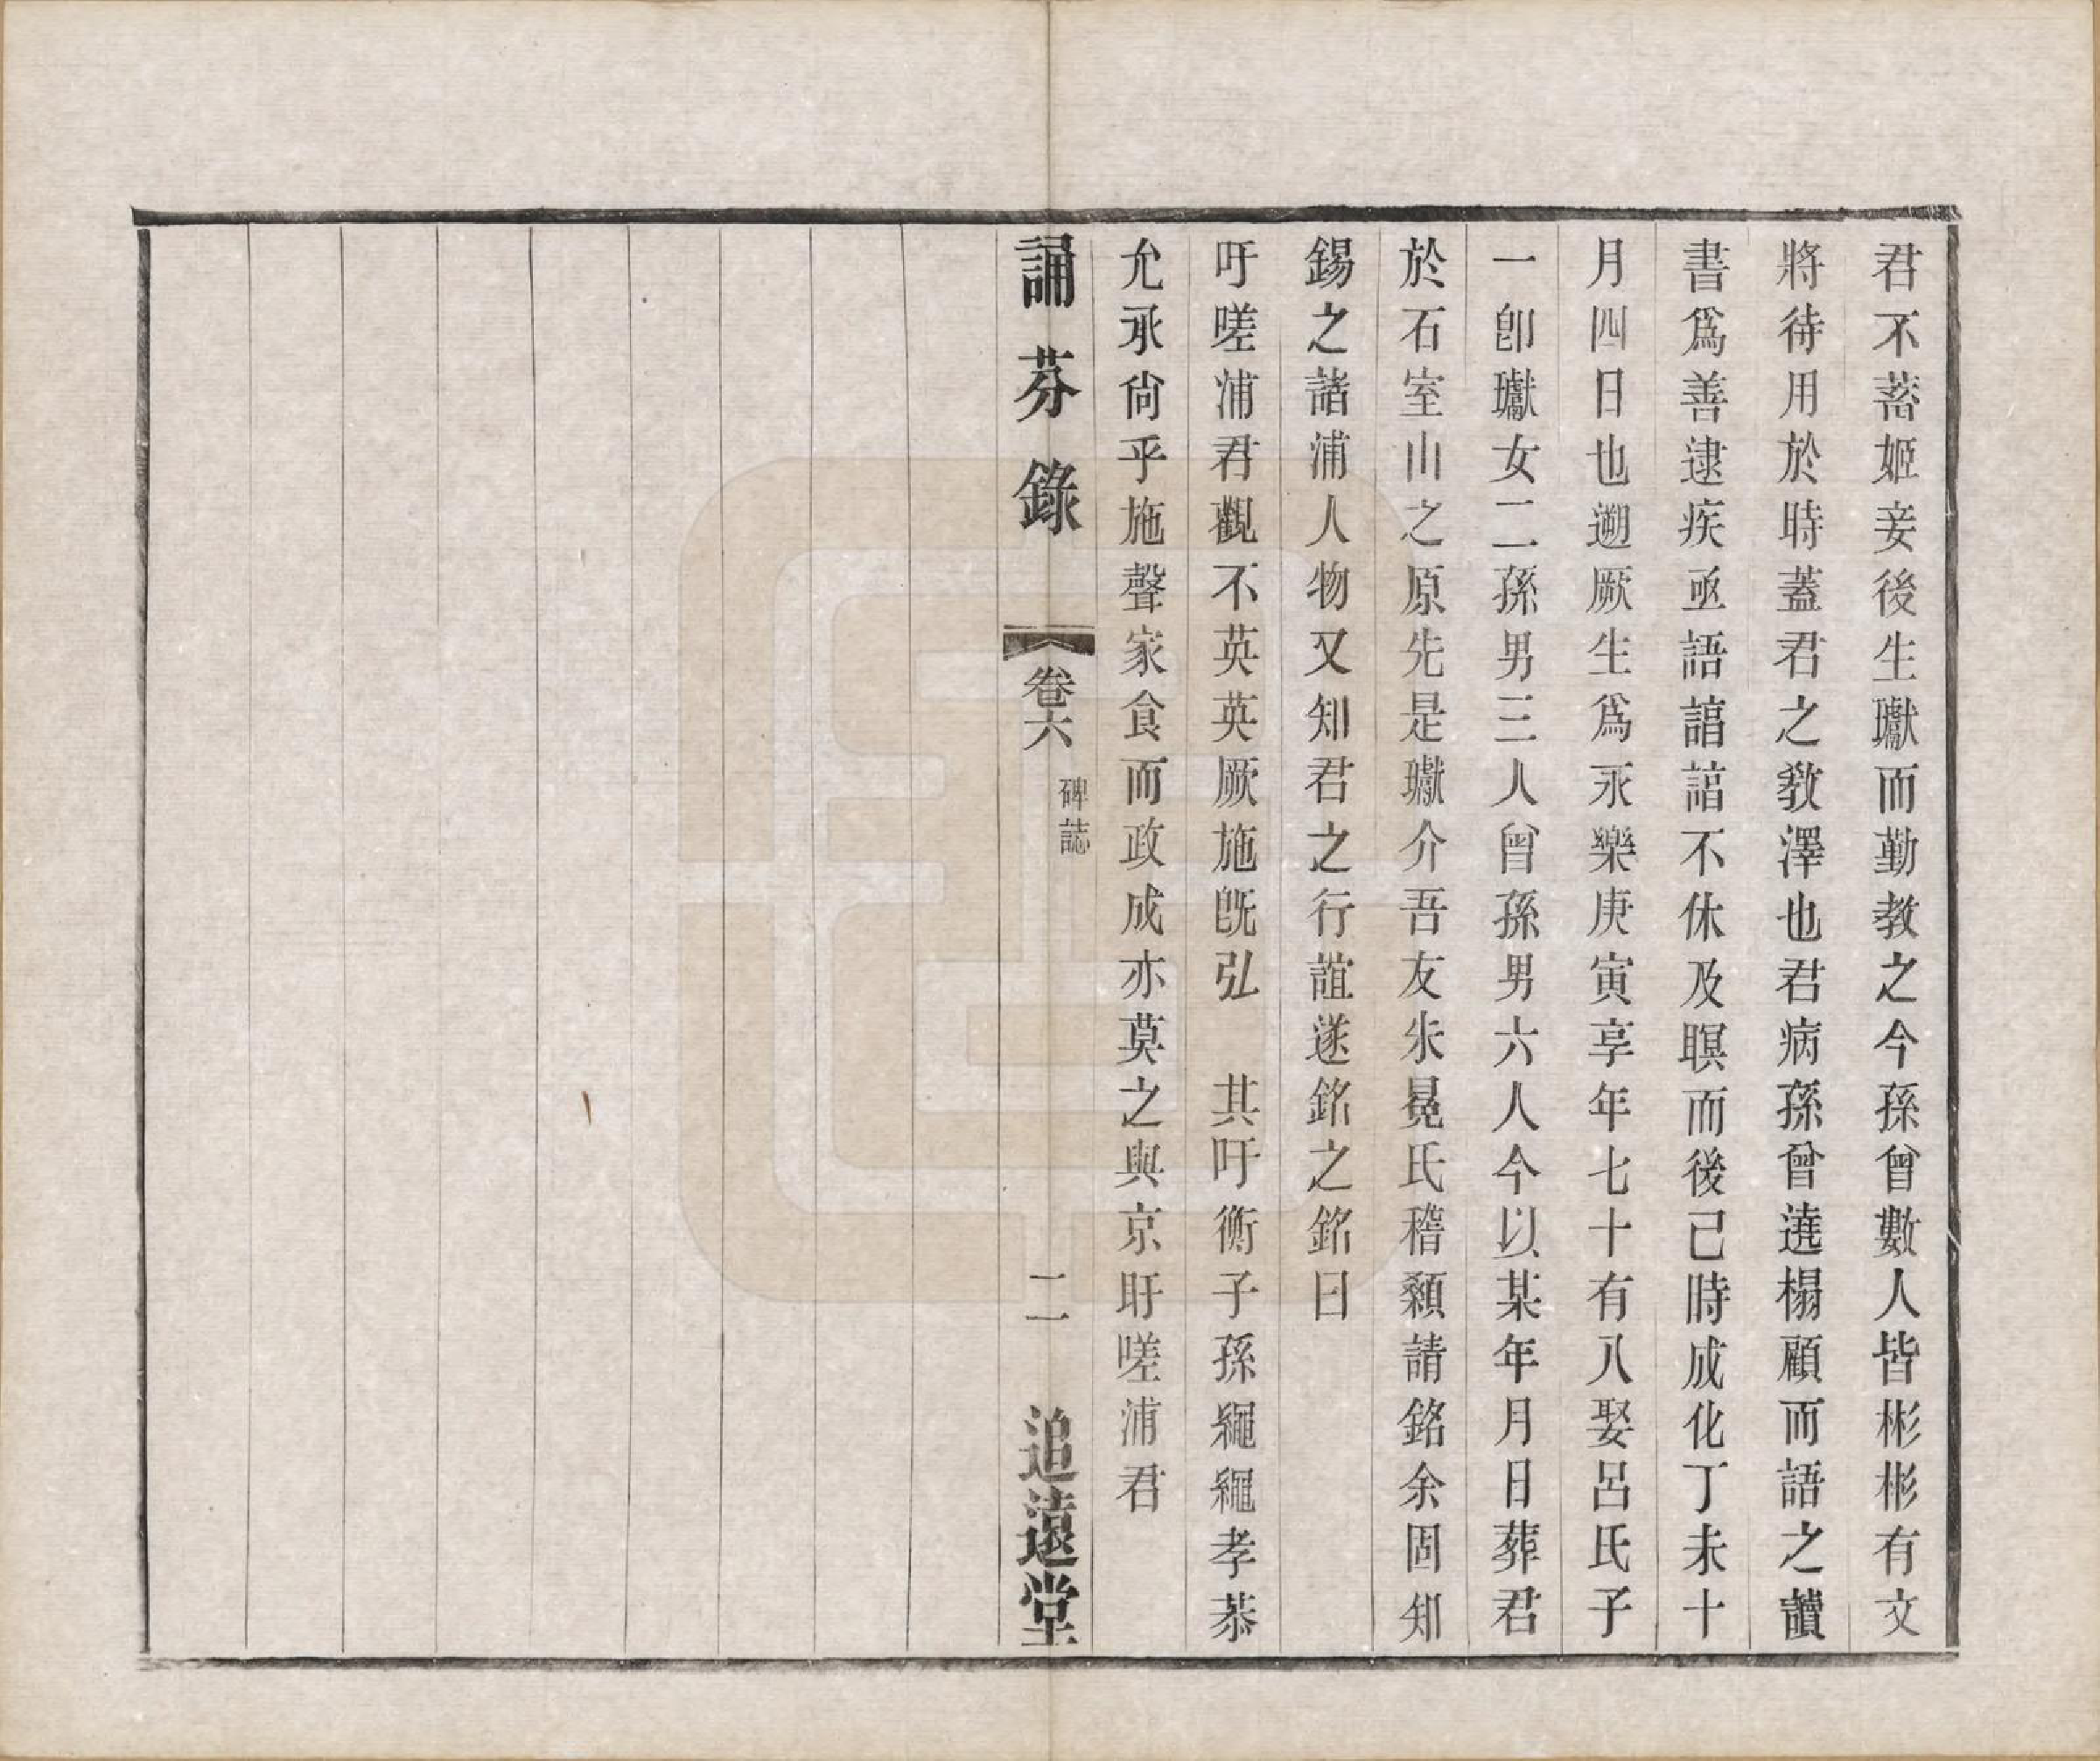 君不蓄姬妾後生瓛而勤教之今孫曾數人皆彬彬有文
將待用於時蓋君之教澤也君病孫曾遶榻顧而語之讀
書爲善逮疾亟語諳諳不休及瞑而後己時成化丁未十
月四日也遡厥生爲永樂庚寅享年七十有八娶呂氏子
一卽瓛女二孫男三人曾孫男六人今以某年月日葬君
於石室山之原先是瓛介吾友朱冕氏稽顙請銘余固知
錫之諧浦人物又知君之行誼遂銘之銘曰
吁嗟浦君觀不英英厥施旣弘　其吁衡子孫繩繩孝恭
允承尙乎施聲家食而政成亦莫之與京盱嗟浦君
誦芬錄
卷六
碑誌
二
追遠堂